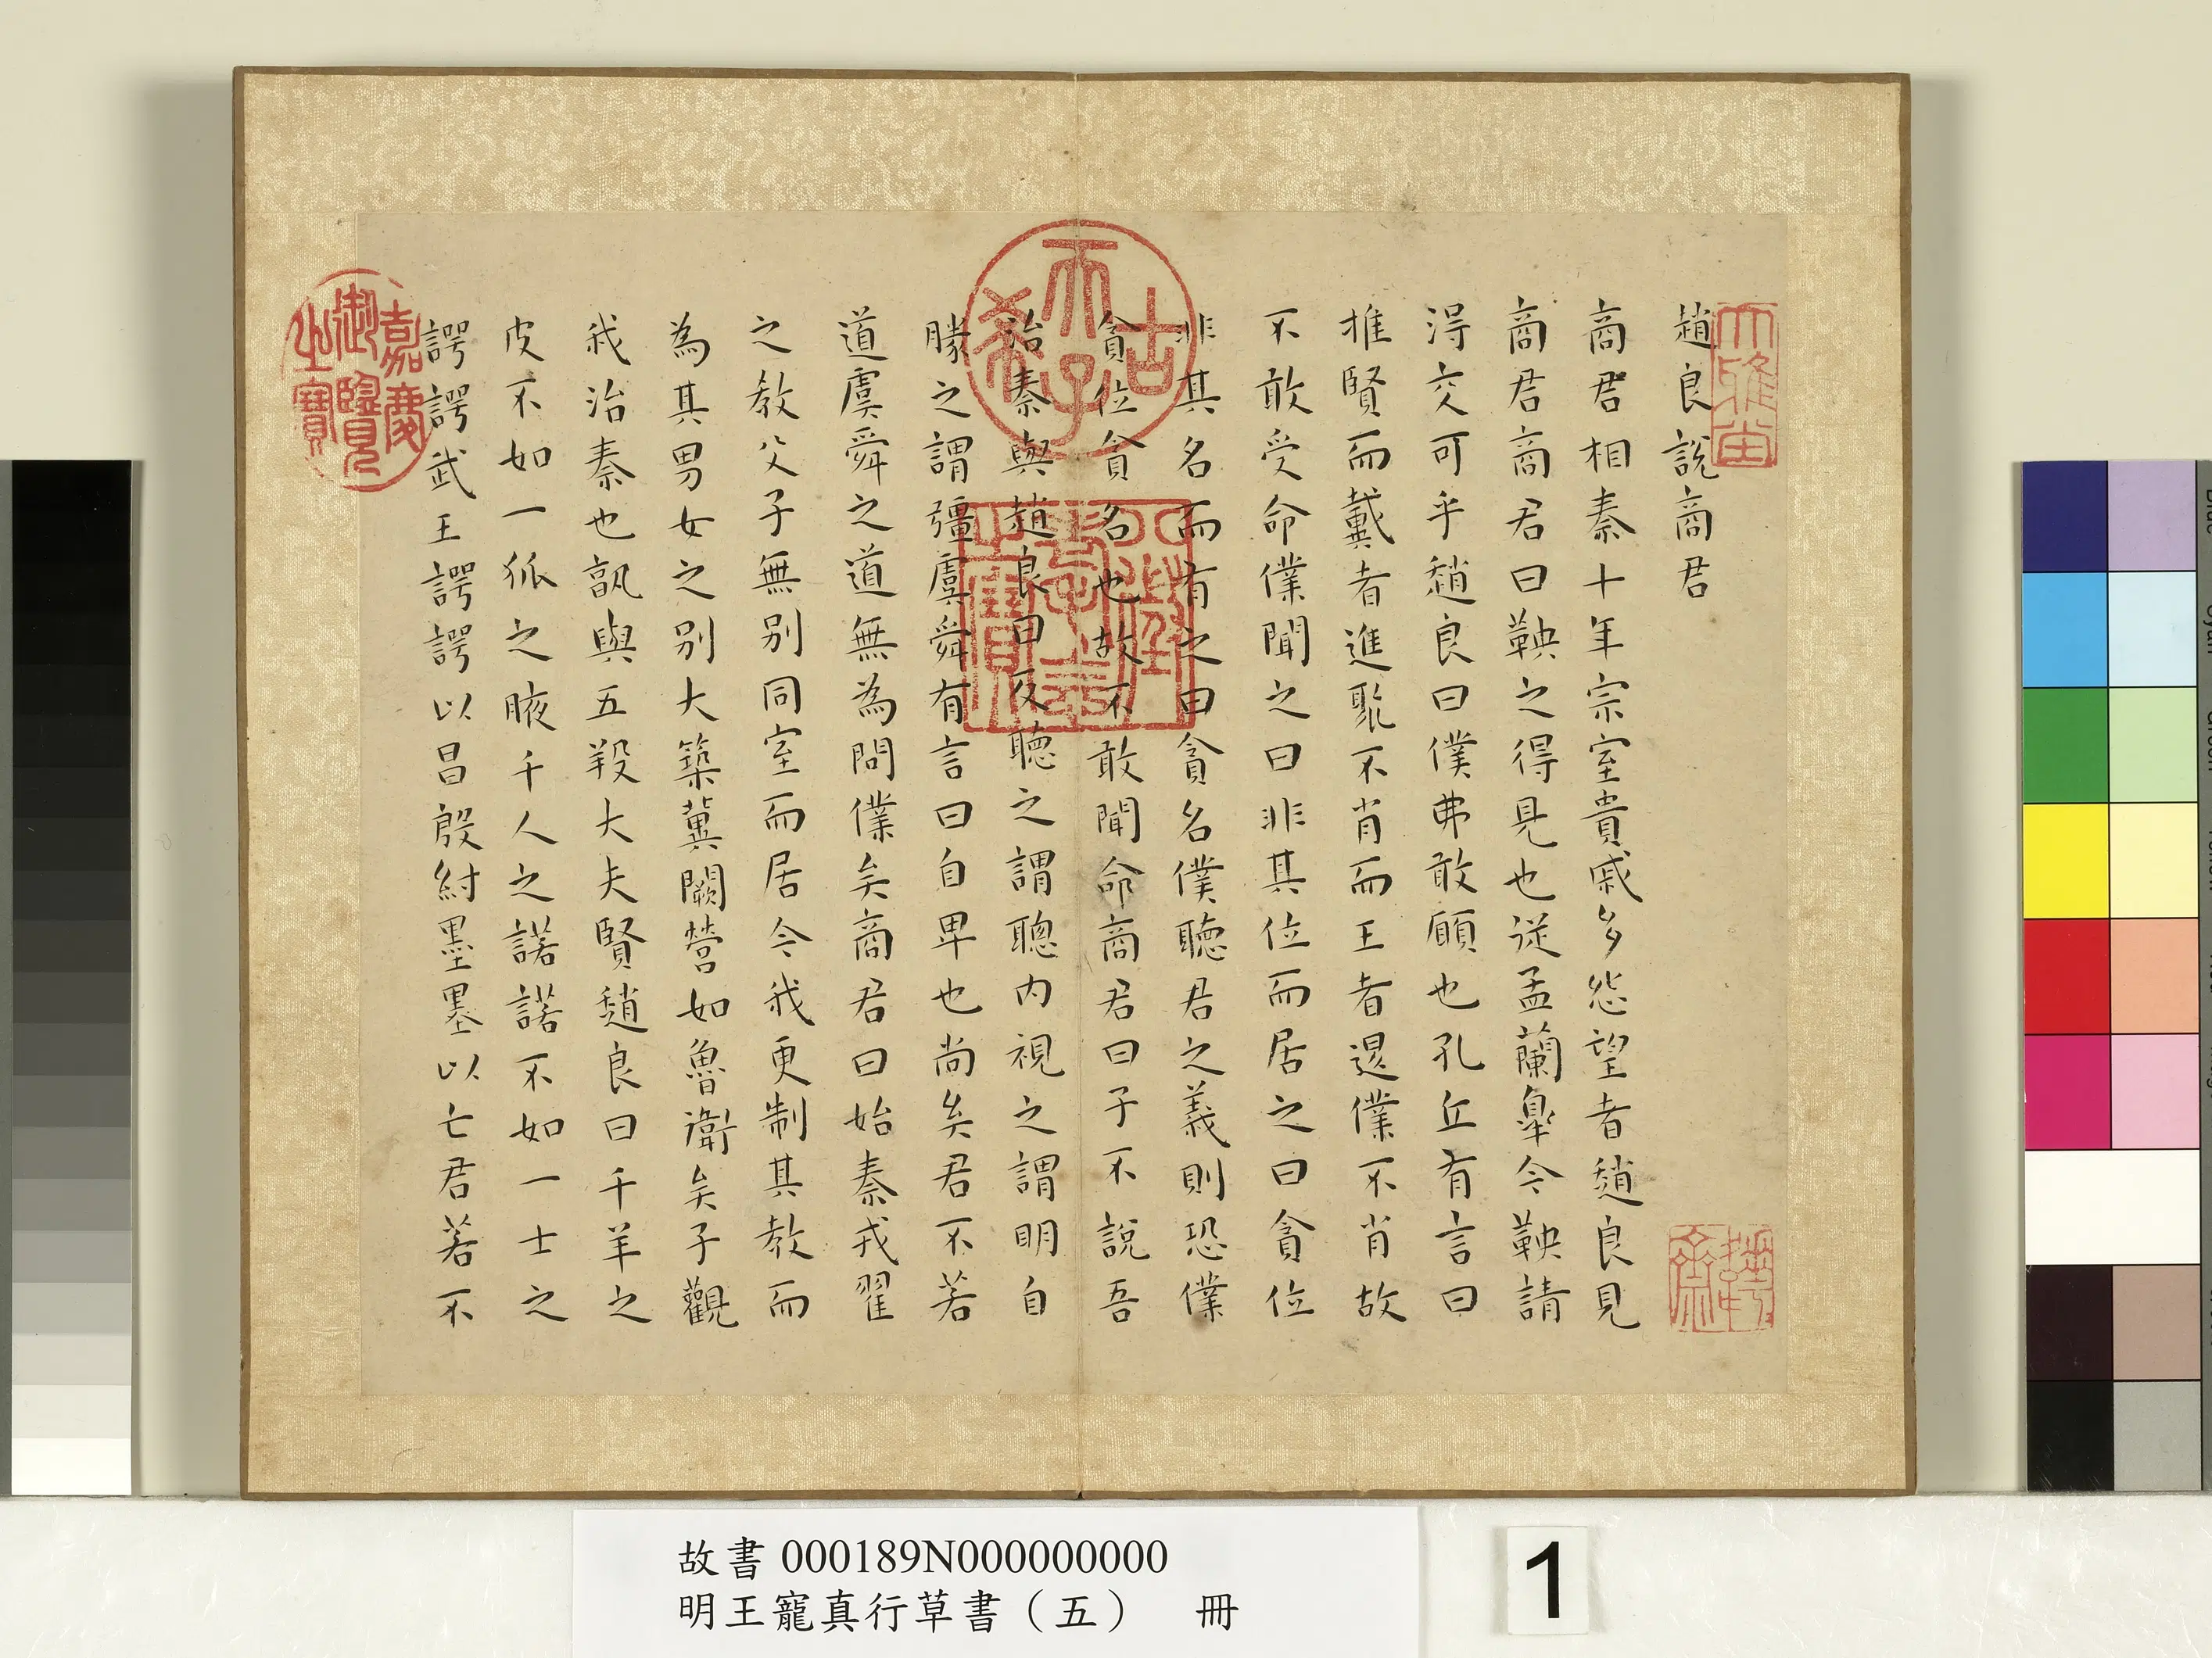 趙良說商君
商君相秦十年宗室貴戚多怨望者趙良見
商君商君曰鞅之得見也從孟蘭臯今鞅請
得交可乎趙良曰僕弗敢願也孔丘有言曰
推賢而戴者進聚不肖而王者退僕不肖故
不敢受命僕聞之曰非其位而居之曰貪位
非其名而有之曰貪名僕聽君之義則恐僕
貪位貪名也故不敢聞命商君曰子不說吾
治秦與趙良曰反聽之謂聰內視之謂明自
勝之謂彊虞舜有言曰自卑也尚矣君不若
道虞舜之道無為問僕矣商君曰始秦戎翟
之教父子無別同室而居今我更制其教而
為其男女之別大築冀闕營如魯衛矣子觀
我治秦也孰與五羖大夫賢趙良曰千羊之
皮不如一狐之腋千人之諾諾不如一士之
諤諤武王諤諤以昌殷紂墨墨以亡君若不
大雅堂
古希天子
乾隆御覽之寶
嘉慶御覽之寶
故書 000189N000000000
明王寵真行草書（五） 冊
1